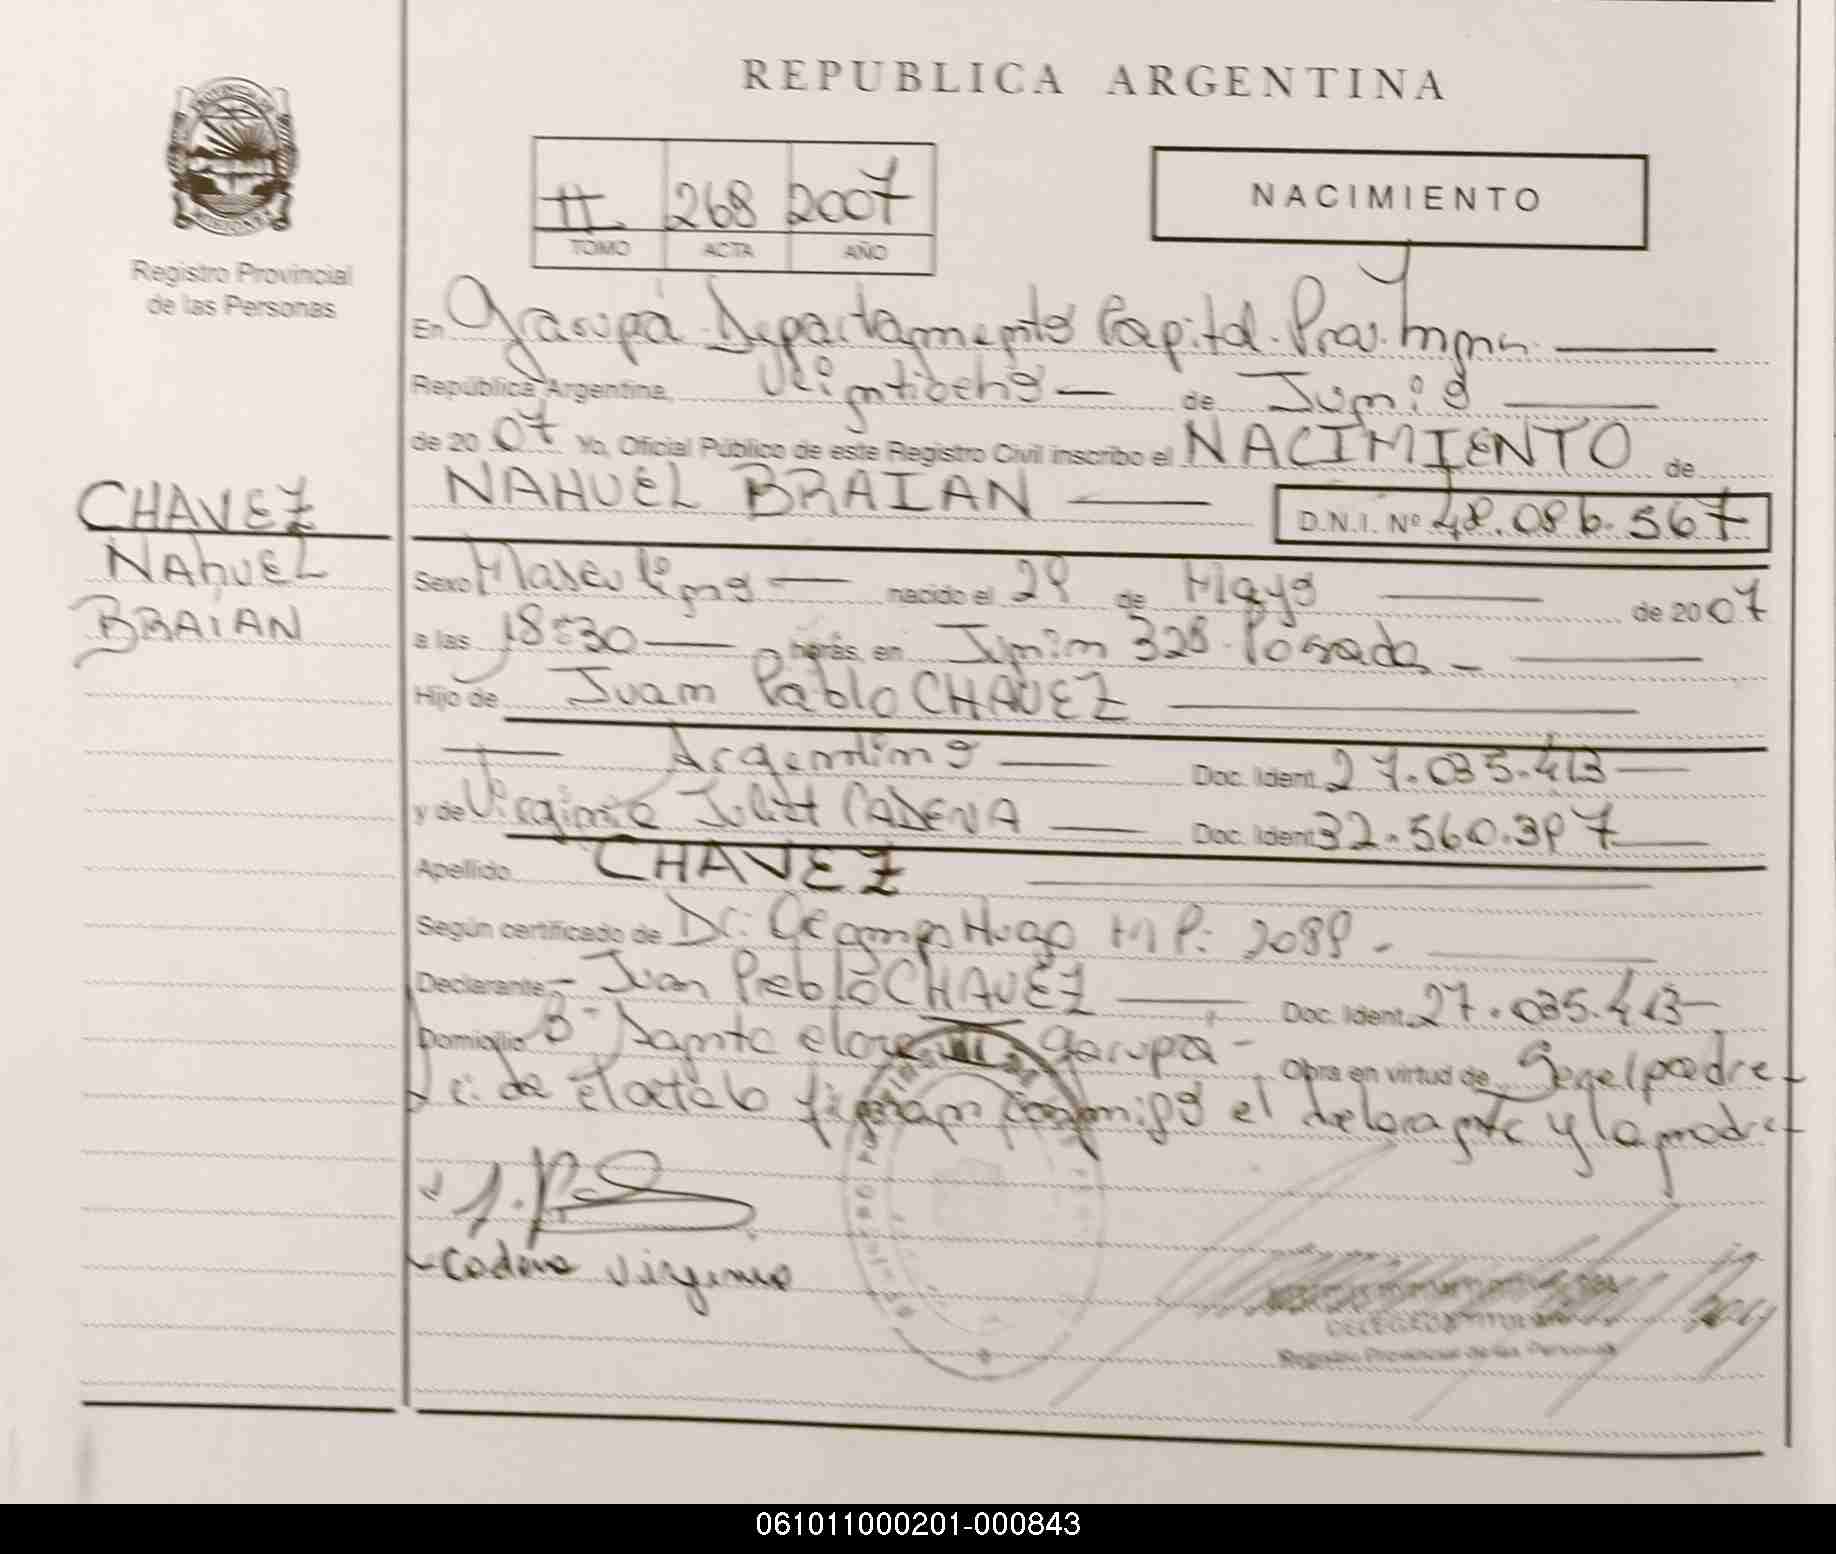 REPUBLICA ARGENTINA
II 268 2007
TOMO ACTA AÑO
NACIMIENTO
Registro Provincial
de las Personas
En Garupá Departamento Capital. Prov. Mnes
República Argentina, Veintiocho de Junio
de 2007 Yo, Oficial Público de este Registro Civil inscribo el NACIMIENTO de
NAHUEL BRAIAN D.N.I. Nº 48.086.567
CHAVEZ
NAhUEL
BRAIAN
Sexo Masculino nacido el 29 de Mayo de 2007
a las 18:30 horas, en Junin 328 Posadas
Hijo de Juan Pablo CHAVEZ
Argentino Doc. Ident. 27.035.413
y de Virginia CADENA Doc. Ident. 32.560.397
Apellido CHAVEZ
Según certificado de Dr: Ocampo Hugo MP: 2089 -
Declarante - Juan Pablo CHAVEZ Doc. Ident. 27.035.413
Domicilio Bº Santa Garupá - Obra en virtud de Ser el padre
Leida el acta la firman conmigo el declarante y la madre
Cadena Virginia
DELEGADO TITULAR
Registro Provincial de las Personas
061011000201-000843